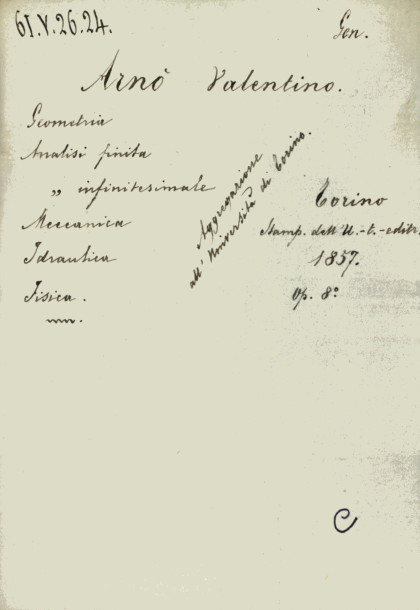 61.V.26.24.
Gen.
Arnò Valentino.
Geometria
Analisi finita
„ infinitesimale
Meccanica
Idraulica
Fisica.
Aggregazione
all' Università di Torino.
Torino
Stamp. dell'U.-t.-editr.
1857.
Op. 8º
C